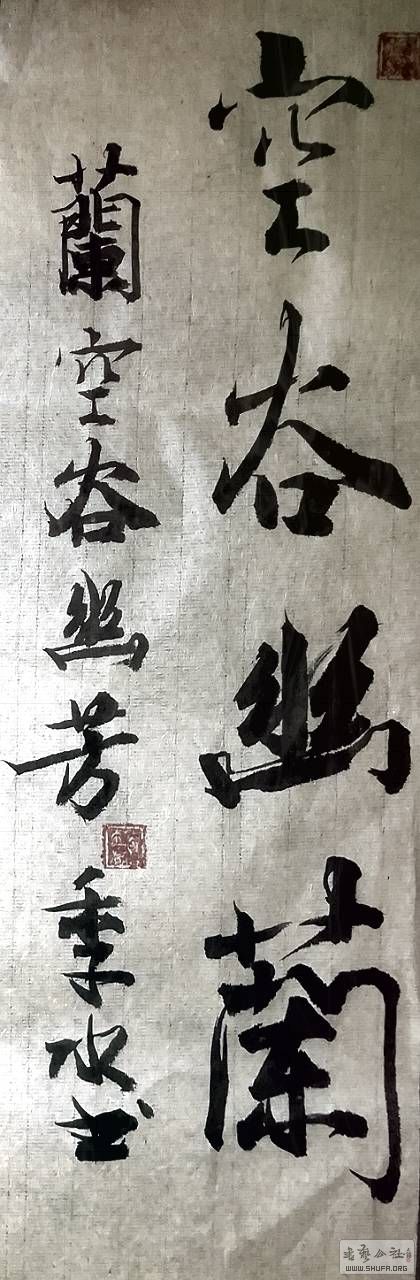 空谷幽蘭
蘭空谷幽芳
季水书
WWW.SHUFA.ORG